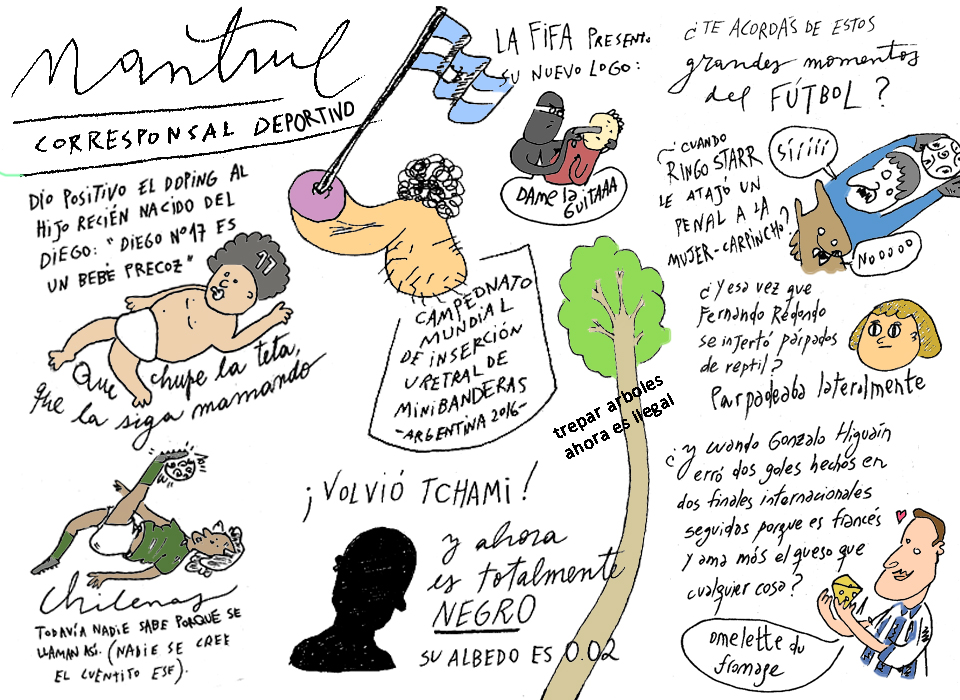 Mantrul
CORRESPONSAL DEPORTIVO
DIO POSITIVO EL DOPING AL
HIJO RECIÉN NACIDO DEL
DIEGO: "DIEGO Nº17 ES
UN BEBÉ PRECOZ"
17
Que chupe la teta,
que la siga mamando
Chilenas
TODAVÍA NADIE SABE PORQUÉ SE
LLAMAN ASI. (NADIE SE CREE
EL CUENTITO ESE).
CAMPEONATO
MUNDIAL
DE INSERCIÓN
URETRAL DE
MINIBANDERAS
-ARGENTINA 2016-
LA FIFA PRESENTO
SU NUEVO LOGO:
DAME la
GUITAAA
trepar arboles
ahora es ilegal
¡VOLVIÓ TCHAMI!
y ahora
es totalmente
NEGRO
SU ALBEDO ES 0.02
¿TE ACORDÁS DE ESTOS
grandes momentos
del FÚTBOL?
¿CUANDO
RINGO STARR
LE ATAJO UN
PENAL A LA
MUJER-CARPINCHO?
Síííííí
Nooooo
¿Y esa vez que
Fernando Redondo
se injertó párpados
de reptil?
Parpadeaba lateralmente
¿Y cuando Gonzalo Higuaín
erró dos goles hechos en
dos finales internacionales
seguidas porque es francés
y ama más el queso que
cualquier cosa?
omelette du
fromage